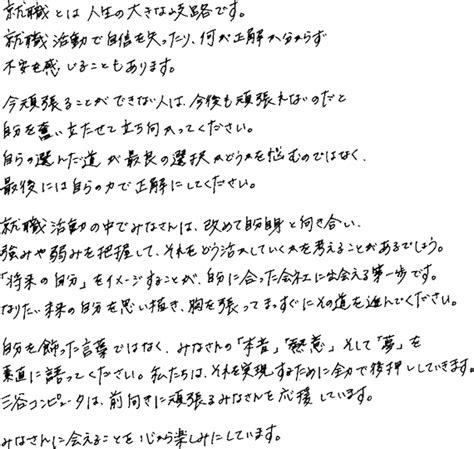 就職とは人生の大きな岐路です。
就職活動で自信を失ったり、何が正解か分からず
不安を感じることもあります。
今頑張ることができない人は、今後も頑張れないのだと
自分を奮い立たせて立ち向かってください。
自らの選んだ道が最良の選択かどうかを悩むのではなく、
最後には自らの力で正解にしてください。
就職活動の中でみなさんは、改めて自分自身と向き合い、
強みや弱みを把握して、それをどう活かしていくかを考えることがあるでしょう。
「将来の自分」をイメージすることが、自分に合った会社に出会える第一歩です。
なりたい未来の自分を思い描き、胸を張ってまっすぐにその道を進んでください。
自分を飾った言葉ではなく、みなさんの「本音」「熱意」そして「夢」を
素直に語ってください。私たちは、それを実現するために全力で後押ししていきます。
三谷コンピュータは、前向きに頑張るみなさんを応援しています。
みなさんに会えることを心から楽しみにしています。